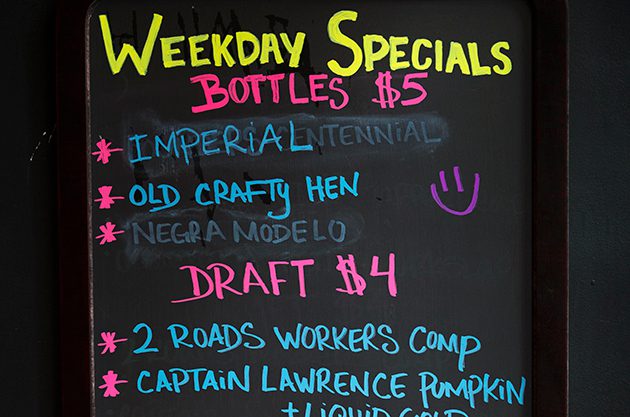 WEEKDAY SPECIALS
BOTTLES $5
* IMPERIAL CENTENNIAL
* OLD CRAFTY HEN
* NEGRA MODELO
DRAFT $4
* 2 ROADS WORKERS COMP
* CAPTAIN LAWRENCE PUMPKIN
+ LIQUID GOLD